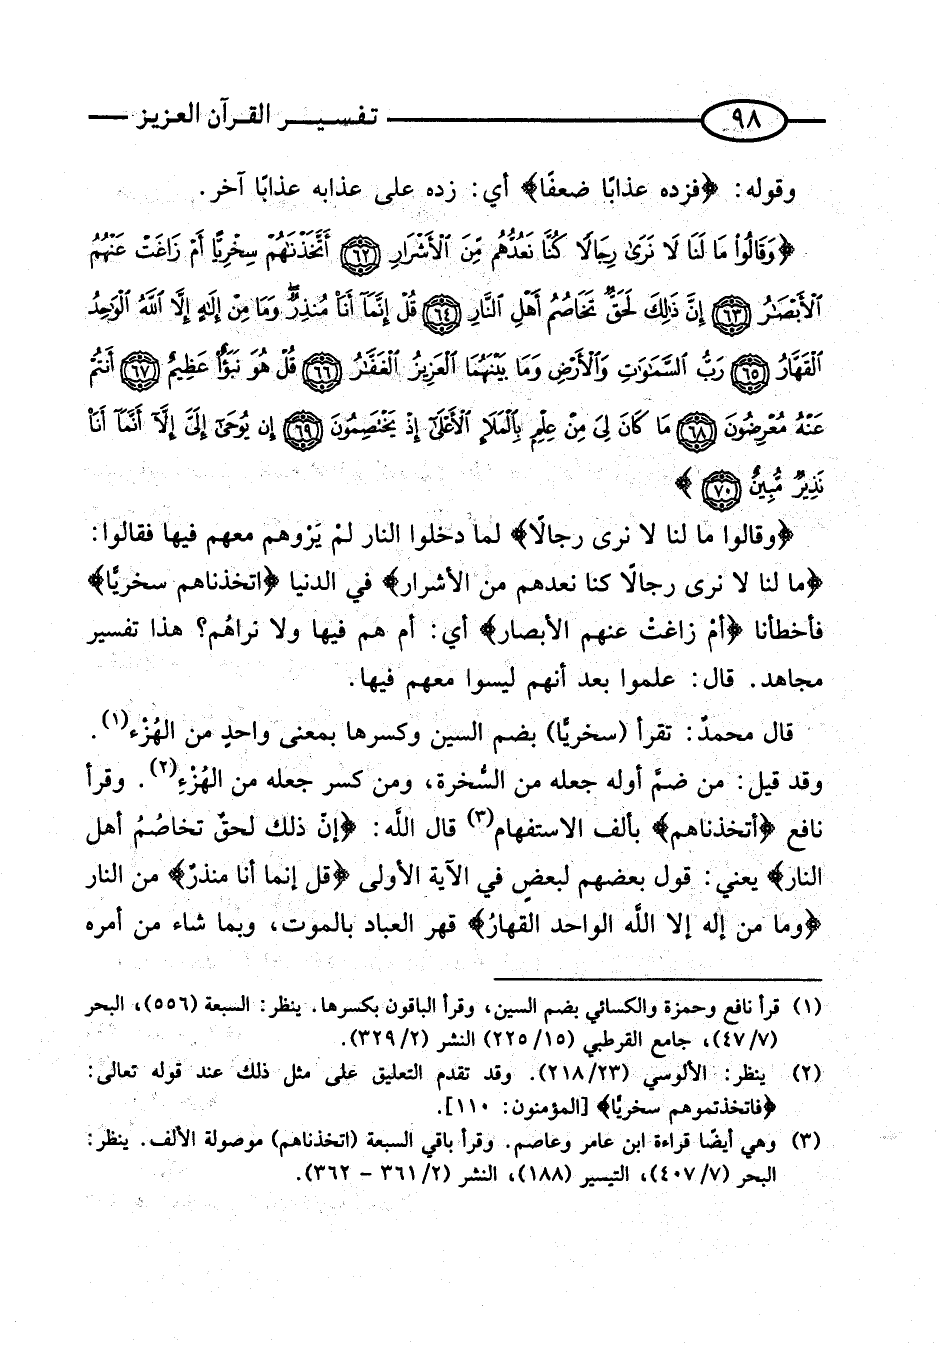 ٩٨ تفسير القرآن العزيز
وقوله: ﴿فزده عذابًا ضعفًا﴾ أي: زده على عذابه عذابًا آخر.
﴿وَقَالُوا۟ مَا لَنَا لَا نَرَىٰ رِجَالًا كُنَّا نَعُدُّهُم مِّنَ ٱلْأَشْرَارِ ﴿٦٢﴾ أَتَّخَذْنَٰهُمْ سِخْرِيًّا أَمْ زَاغَتْ عَنْهُمُ
ٱلْأَبْصَٰرُ ﴿٦٣﴾ إِنَّ ذَٰلِكَ لَحَقٌّ تَخَاصُمُ أَهْلِ ٱلنَّارِ ﴿٦٤﴾ قُلْ إِنَّمَآ أَنَا۠ مُنذِرٌ ۖ وَمَا مِنْ إِلَٰهٍ إِلَّا ٱللَّهُ ٱلْوَٰحِدُ
ٱلْقَهَّارُ ﴿٦٥﴾ رَبُّ ٱلسَّمَٰوَٰتِ وَٱلْأَرْضِ وَمَا بَيْنَهُمَا ٱلْعَزِيزُ ٱلْغَفَّٰرُ ﴿٦٦﴾ قُلْ هُوَ نَبَؤٌا۟ عَظِيمٌ ﴿٦٧﴾ أَنتُمْ
عَنْهُ مُعْرِضُونَ ﴿٦٨﴾ مَا كَانَ لِىَ مِنْ عِلْمٍۭ بِٱلْمَلَإِ ٱلْأَعْلَىٰٓ إِذْ يَخْتَصِمُونَ ﴿٦٩﴾ إِن يُوحَىٰٓ إِلَىَّ إِلَّآ أَنَّمَآ أَنَا۠
نَذِيرٌ مُّبِينٌ ﴿٧٠﴾ ﴾
﴿وقالوا ما لنا لا نرى رجالًا﴾ لما دخلوا النار لمْ يَرْوهم معهم فيها فقالوا:
﴿ما لنا لا نرى رجالًا كنا نعدهم من الأشرار﴾ في الدنيا ﴿اتخذناهم سخريًّا﴾
فأخطأنا ﴿أمْ زاغتْ عنهم الأبصار﴾ أي: أم هم فيها ولا نراهُم؟ هذا تفسير
مجاهد. قال: علموا بعد أنهم ليسوا معهم فيها.
قال محمدٌ: تقرأ (سخريًّا) بضم السين وكسرها بمعنى واحدٍ من الهُزْء(١).
وقد قيل: من ضمَّ أوله جعله من السُّخرة، ومن كسر جعله من الهُزْءِ(٢). وقرأ
نافع ﴿أتخذناهم﴾ بألف الاستفهام(٣) قال اللَّه: ﴿إنّ ذلك لحقٌ تخاصُمُ أهل
النار﴾ يعني: قول بعضهم لبعضٍ في الآية الأولى ﴿قل إنما أنا منذرٌ﴾ من النار
﴿وما من إله إلا اللَّه الواحد القهارُ﴾ قهر العباد بالموت، وبما شاء من أمره
(١) قرأ نافع وحمزة والكسائي بضم السين، وقرأ الباقون بكسرها. ينظر: السبعة (٥٥٦)، البحر
(٤٧/٧)، جامع القرطبي (٢٢٥/١٥) النشر (٣٢٩/٢).
(٢) ينظر: الألوسي (٢١٨/٢٣). وقد تقدم التعليق على مثل ذلك عند قوله تعالى:
﴿فاتخذتموهم سخريًّا﴾ [المؤمنون: ١١٠].
(٣) وهي أيضًا قراءة ابن عامر وعاصم. وقرأ باقي السبعة (اتخذناهم) موصولة الألف. ينظر:
البحر (٤٠٧/٧)، التيسير (١٨٨)، النشر (٣٦١/٢ - ٣٦٢).